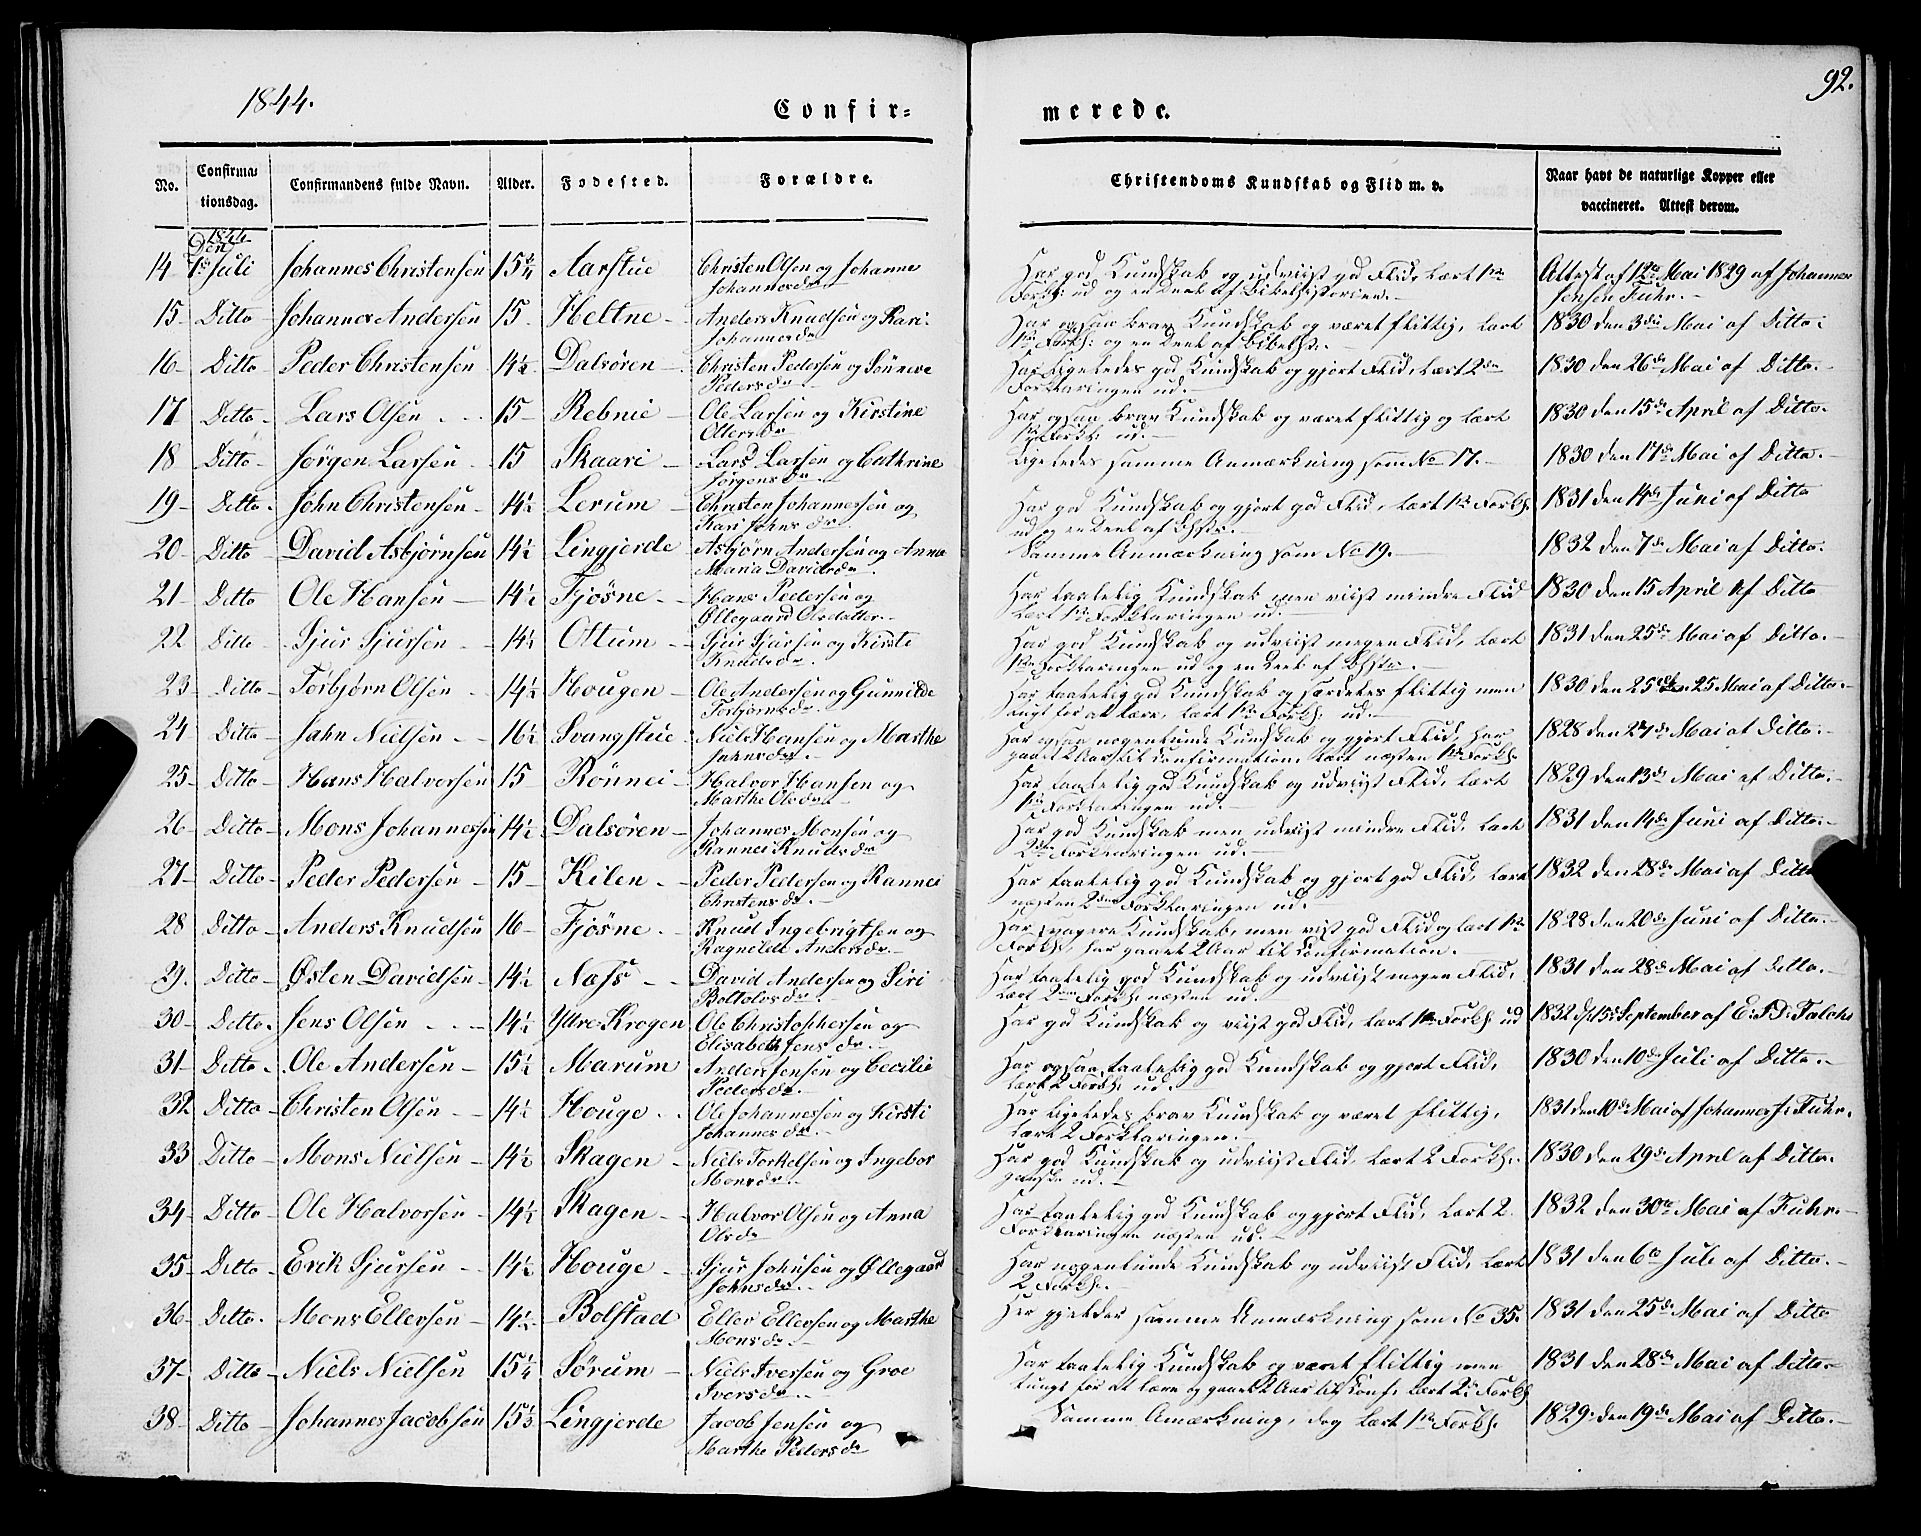 1844.
92.
Confir= merede.
No. Confirma tionsdag. Confirmandens fulde Navn. Alder. Fodested. Forældre. Christendoms Kundskab og Flid m. v. Naar havt de naturlige Kopper eller vaccineret. Attest derom.
1844
Den
14 1ste Juli Johannes Christensen 15 3/4 Aarstue Christen Olsen og Johanne Har god Kundskab og udviist god Flid, lært 1ste Attest af 12te Mai 1829 af Johannes
Johannesdr Forkl: ud og en Deel af Bibelhistorien.- Jensen Fuhr.-
15- Ditto- Johannes Andersen 15- Heltne- Anders Knudsen og Kari Har ogsaa brav Kundskab og været flittig, lært 1830 den 3die Mai af Ditto:
Johannesdr 1ste Forkl: og en Deel af Bibelhst.-
16- Ditto- Peder Christensen 14½ Dalsören- Christen Pedersen og Sünneve Har ligeledes god Kundskab og gjort Flid, lært 2den 1830 den 26de Mai af Ditto.-
Pedersdr Forklaringen ud.-
17 Ditto- Lars Olsen 15- Rebnie- Ole Larsen og Kirstine Har ogsaa brav Kundskab og været flittig og lært 1830 den 15de April af Ditto.
Ollersdr 1ste Forkl: ud.-
18 Ditto- Jørgen Larsen- 15 Skaari- Lars Larsen og Cathrine Ligeledes samme Anmærkning som No 17.- 1830 den 17de Mai af Ditto.-
Jørgensdr
19- Ditto. John Christensen- 14½ Lerum- Christen Johannessen og Har god Kundskab og gjort god Flid, lært 1ste Forkl: 1831 den 14de Juni af Ditto
Kari Johnsdr. ud og en Deel af Bhstr.
20- Ditto David Asbjørnsen 14½ Lingjerde Asbjørn Andersen og Anna Samme Anmærkning som No 19.- 1832 den 7de Mai af Ditto.
Maria Davidsdr.
21- Ditto Ole Hansen- 14½ Fjösne- Hans Pedersen og Har taalelig Kundskab men viist mindre Flid 1830 den 15 April af Ditto
Øllegaard Olsdatter.- lært 1ste Forklaringen ud.
22 Ditto- Sjur Sjursen- 14½ Ottum- Sjur Sjursen og Kirsti Har god Kundskab og udviist megen Flid, lært 1831 den 25de Mai af Ditto.-
Knudsdr. 1ste Forklaringen ud og en Deel af Bhstr.-
23- Ditto- Torbjørn Olsen- 14½ Hougen- Ole Andersen og Gunnilde Har taalelig god Kundskab og særdeles flittig men 1830 den 25de 25 Mai af Ditto.-
Torbjørnsdr.- tungt for at lære, lært 1ste Forkl: ud.-
24 Ditto- John Nielsen- 16½ Svangstue Niels Hansen og Marthe Har ogsaa nogenlunde Kundskab og gjort Flid, har 1828 den 27de Mai af Ditto.-
Johnsdr.- gaaet 2 Aar til Confirmation, lært næsten 1ste Forkl:
25- Ditto- Hans Halvorsen 15- Rönnei- Halvor Hansen og Har taalelig god Kundskab og udviist Flid, lært 1829 den 13de Mai af Ditto:-
Marthe Olsdr.- 1ste Forklaringen ud.-
26- Ditto- Mons Johannessen 14½ Dalsören- Johannes Monsen og Har god Kundskab men udviist mindre Flid, lært 1831 den 14de Juni af Ditto.-
Rannei Knudsdr 2den Forklaringen ud.-
27- Ditto- Peder Pedersen- 15- Kilen.- Peder Pedersen og Rannei Har taalelig god Kundskab og gjort god Flid, lært 1832 den 28de Mai af Ditto
Christensdr.- næsten 2den Forklaringen ud.-
28 Ditto- Anders Knudsen 16- Fjösne.- Knud Ingebrigtsen og Har svagere Kundskab, men vist god Flid og lært 1ste 1828 den 20de Juni af Ditto.-
Ragnilde Andersdr.- Forkl:, har gaaet 2 Aar til Confirmation.-
29. Ditto- Østen Davidsen- 14½ Næss-- David Andersen og Siri Har taalelig god Kundskab og udviist megen Flid, 1831 den 28de Mai af Ditto.-
Boltolvsdr.- lært 2den Forkl: næsten ud.-
30- Ditto. Jens Olsen.-- 14½ Yttre Krogen Ole Christophersen og Har god Kundskab og viist god Flid, lært 1ste Forkl: ud 1832 d. 15de September af E: D: Falch:
Elisabeth Jensdr.-
31- Ditto. Ole Andersen- 15½ Marum- Anders Jensen og Cecilie Har ogsaa taalelig god Kundskab og gjort Flid, 1830 den 10de Juli af Ditto.-
Pedersdr.- lært 2 Forkl: ud.-
32 Ditto- Christen Olsen- 14½ Houge.. Ole Johannessen og Kirsti Har ligeledes brav Kundskab og været flittig, 1831 den 10de Mai af Johannes J: Fuhr.
Johannesdr.- lært 2 Forklaringen.-
33 Ditto- Mons Nielsen- 14½ Skagen- Niels Torkelsen og Ingebor Har god Kundskab og udviist Flid, lært 2 Forkl:. 1830 den 29de April af Ditto.
Monsdr.- ganske ud.-
34- Ditto- Ole Halvorsen- 14½ Skagen- Halvor Olsen og Anna Har taalelig god Kundskab og gjort Flid, lært 2 1832 den 30te Mai af Fuhr.-
Olsdr Forklaringen næsten ud.-
35- Ditto- Erik Sjursen- 14½ Houge- Sjur Johnsen og Øllegaard Har nogenlunde Kundskab og udviist Flid, lært 1831 den 6te Juli af Ditto.-
Johnsdr.- 2 Forkl:.-
36- Ditto. Mons Ellersen- 14½ Bolstad Eller Ellersen og Marthe Her gjældes samme Anmærkning som No 35. 1831 den 25de Mai af Ditto
Monsdr.-
37- Ditto- Niels Nielsen 15¼ Sörum- Niels Iversen og Groe Har taalelig Kundskab og været flittig men 1831 den 28de Mai af Ditto.-
Iversdr.- tungt for at lære og gaaet 2 Aar til Conf: lært 2de Forkl:
38- Ditto- Johannes Jacobsen 15⅓ Lingjerde Jacob Jensen og Samme Anmærkning, dog lært 1ste Forkl:. 1829: den 19de Mai af Ditto.-
Marthe Pedersdr